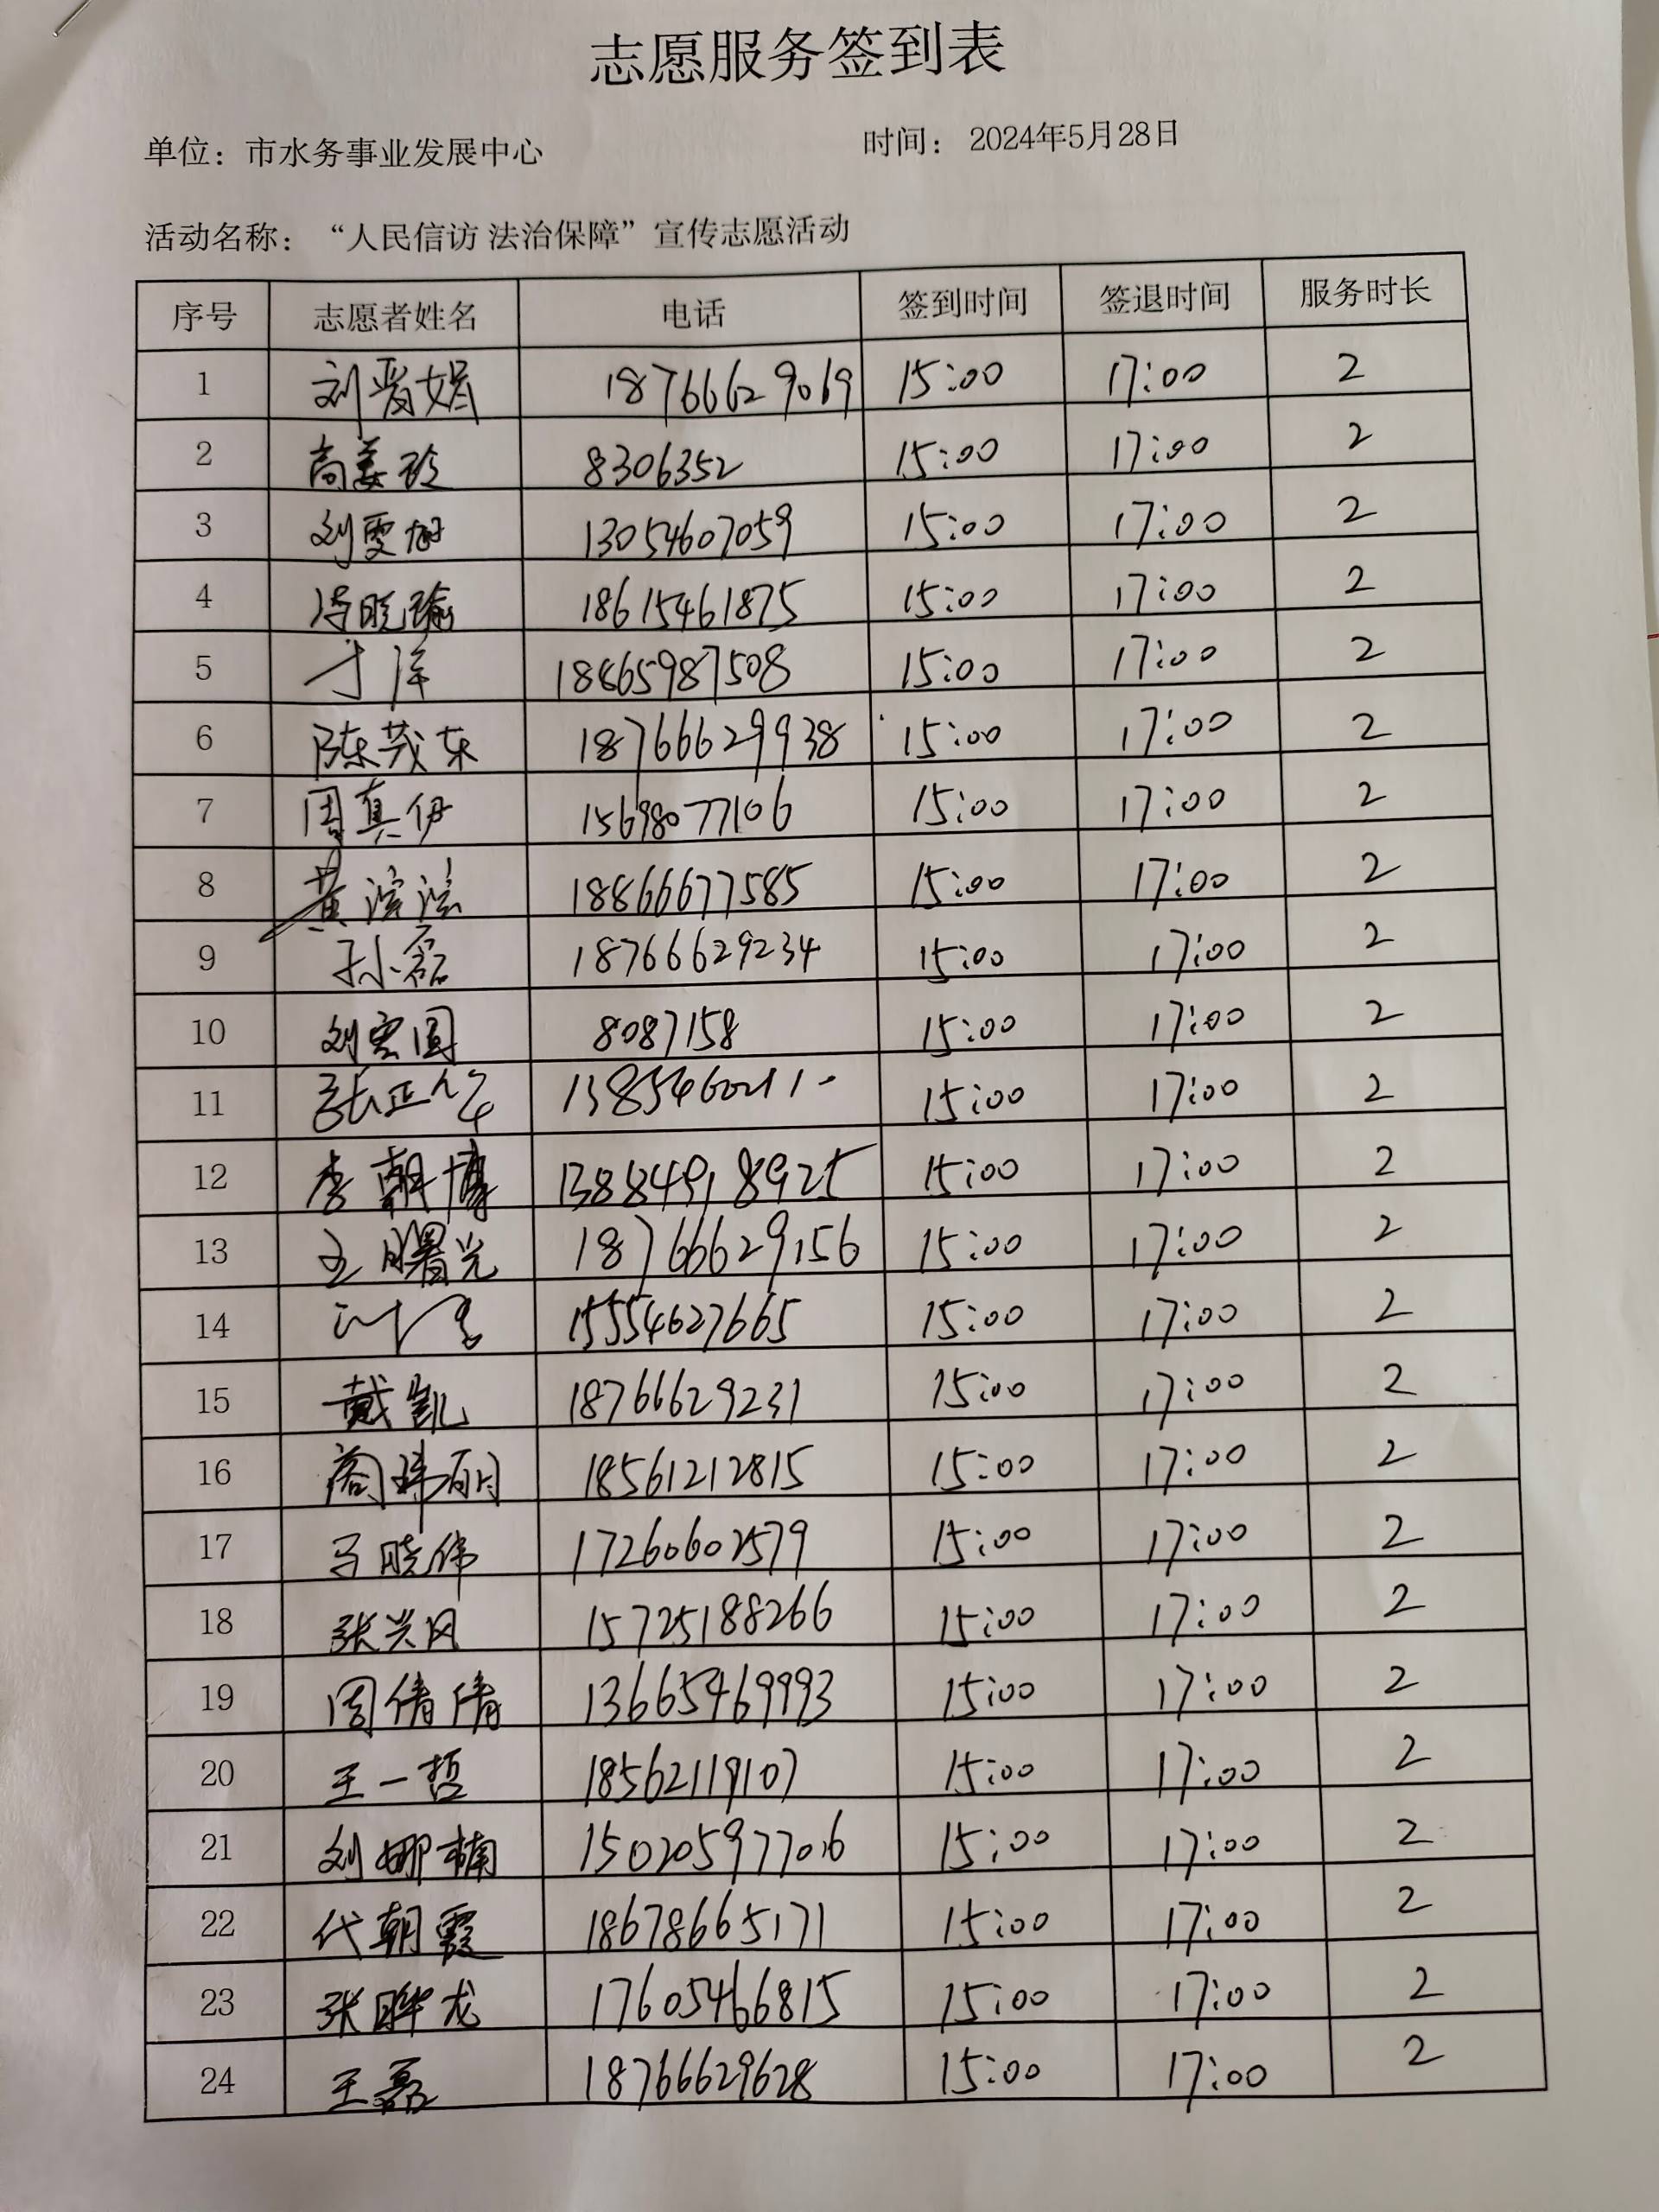 志愿服务签到表
单位：市水务事业发展中心 时间： 2024年5月28日
活动名称：“人民信访 法治保障”宣传志愿活动
序号 志愿者姓名 电话 签到时间 签退时间 服务时长
1 刘晋娟 18766629069 15:00 17:00 2
2 高美玲 8306352 15:00 17:00 2
3 刘雯 13054607059 15:00 17:00 2
4 冯晓瑜 18615461875 15:00 17:00 2
5 才洋 18865987508 15:00 17:00 2
6 陈茂东 18766629938 15:00 17:00 2
7 周真伊 15698077106 15:00 17:00 2
8 黄滢滢 18866677585 15:00 17:00 2
9 孙磊 18766629234 15:00 17:00 2
10 刘宏国 8087158 15:00 17:00 2
11 张正 15:00 17:00 2
12 李朝博 15:00 17:00 2
13 王曙光 18766629156 15:00 17:00 2
14 15554627665 15:00 17:00 2
15 戴凯 18766629231 15:00 17:00 2
16 阎玮丽 18561212815 15:00 17:00 2
17 马晓伟 17260602579 15:00 17:00 2
18 张兴风 15725188266 15:00 17:00 2
19 周倩倩 13665469993 15:00 17:00 2
20 王一哲 18562119107 15:00 17:00 2
21 刘娜楠 15020597706 15:00 17:00 2
22 代朝霞 18678665171 15:00 17:00 2
23 张晔龙 17605466815 15:00 17:00 2
24 王磊 18766629628 15:00 17:00 2